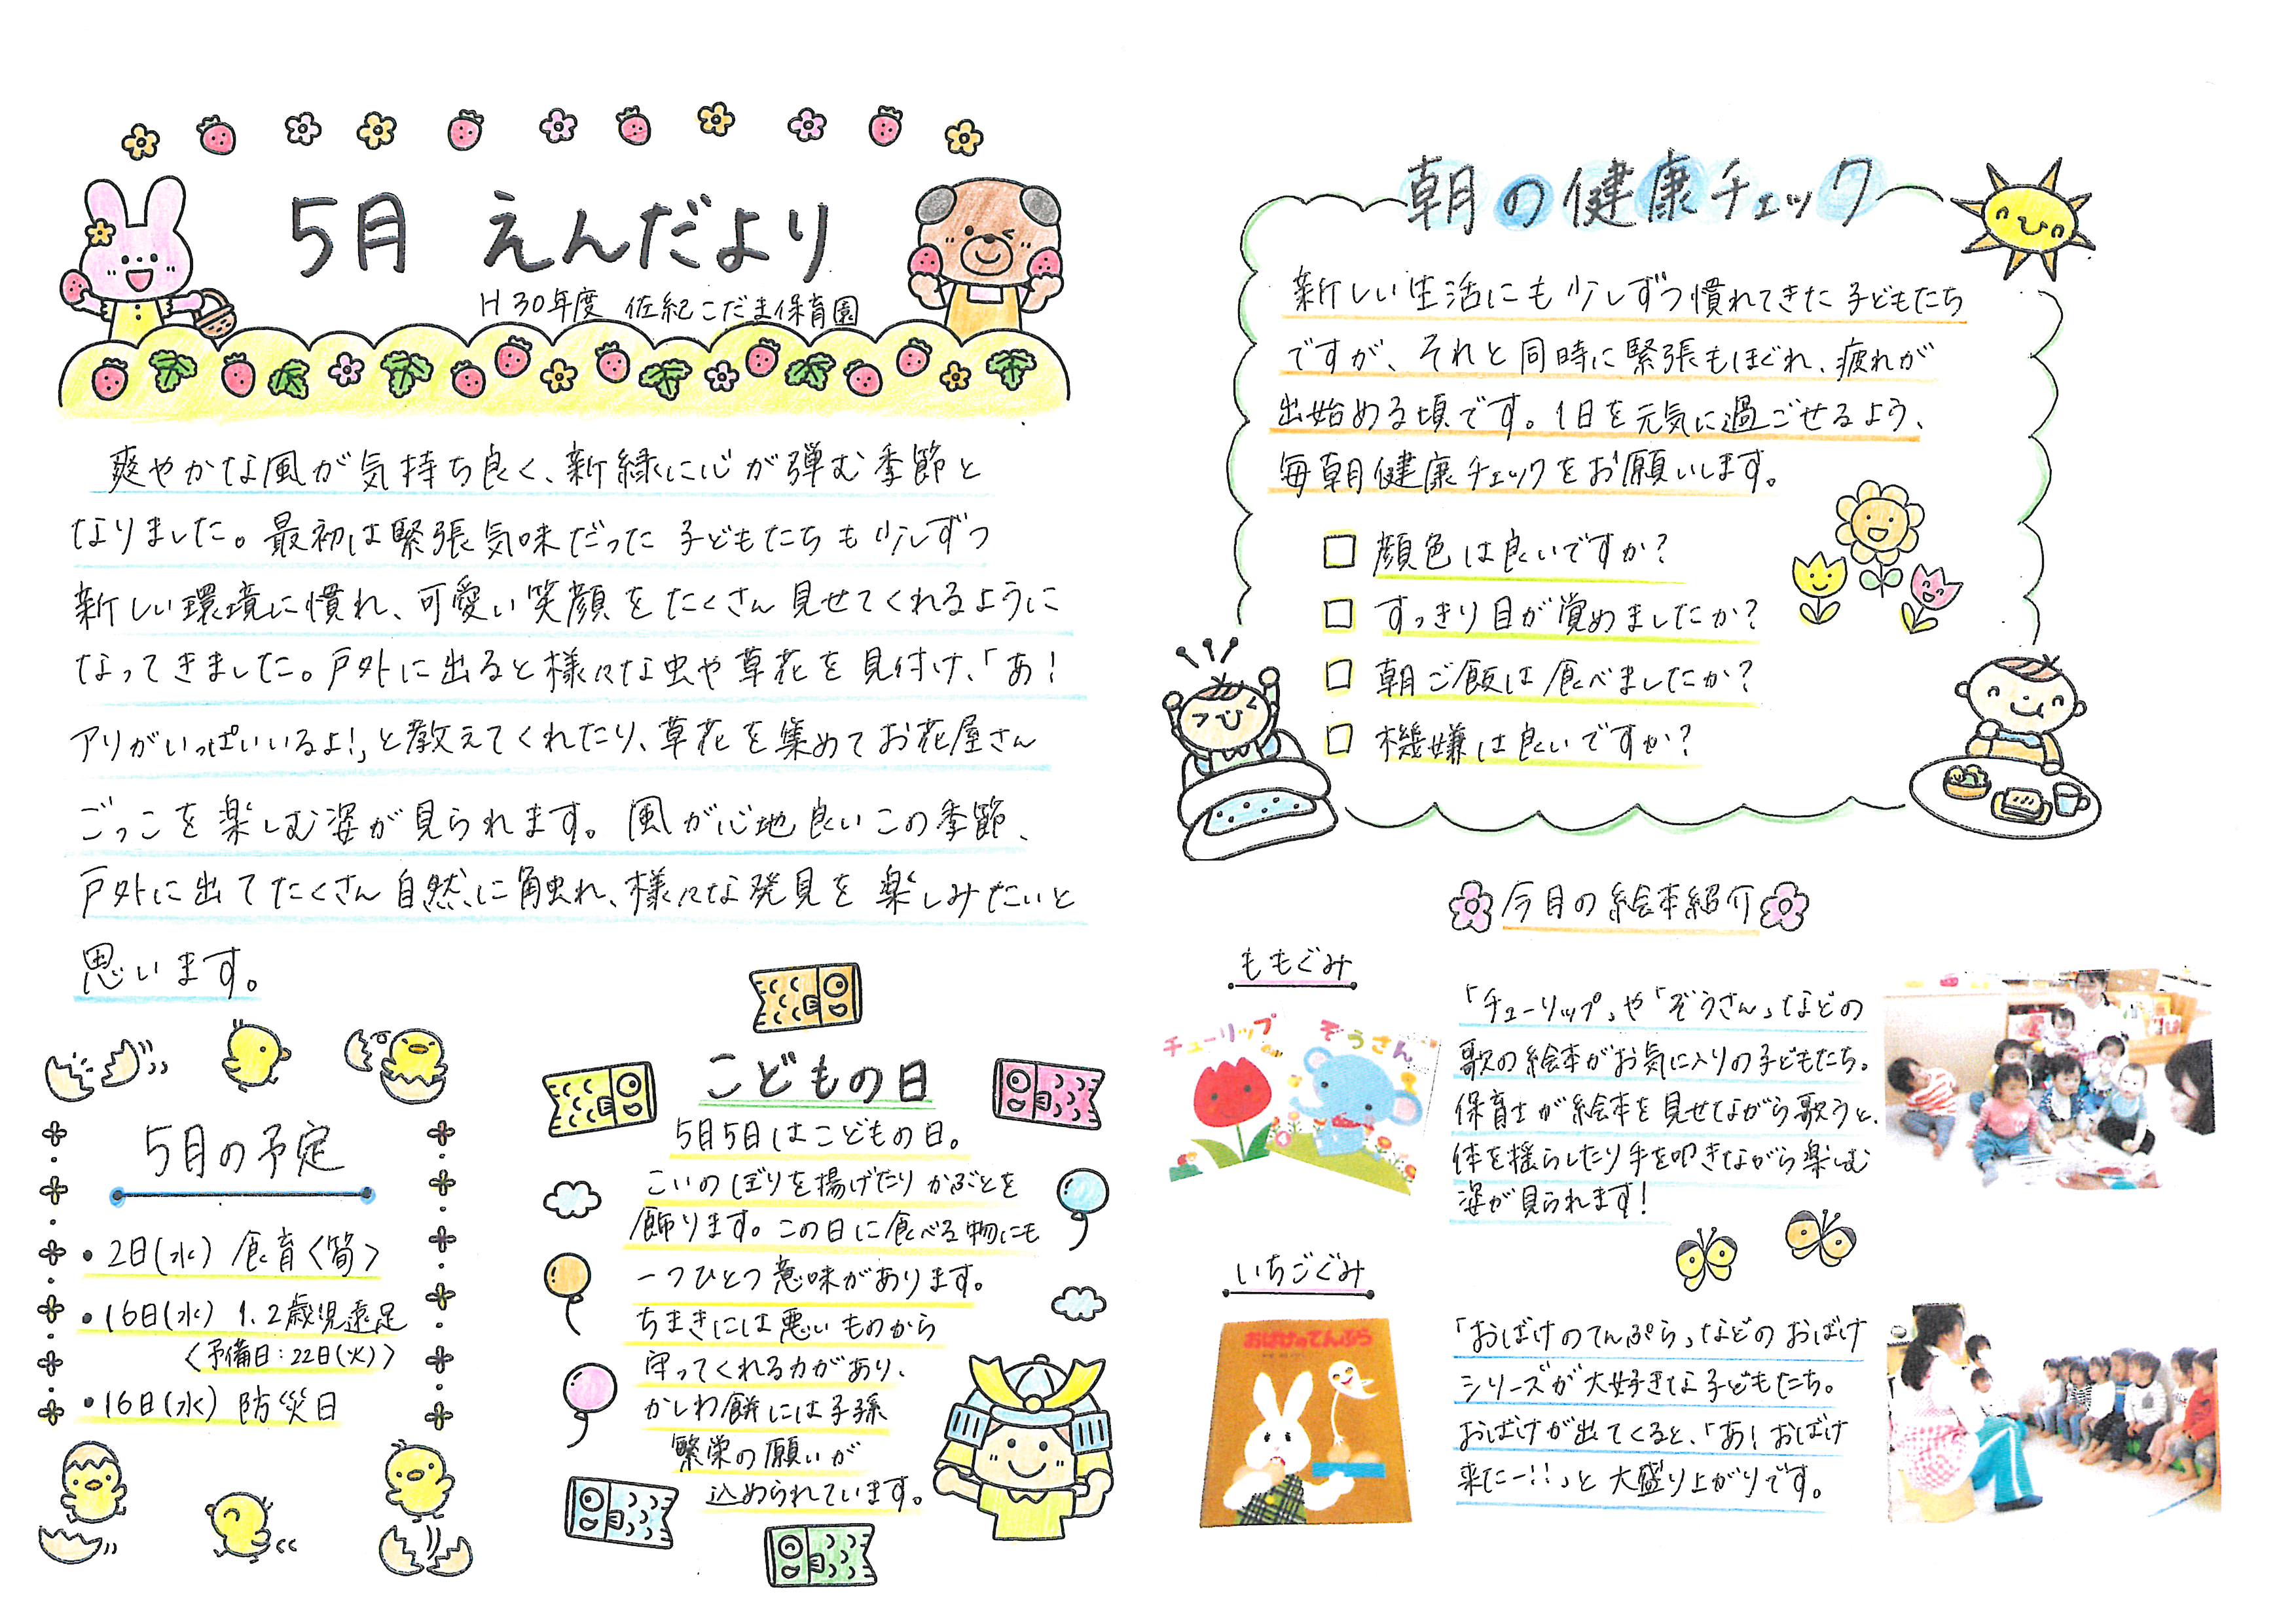 5月 えんだより
H30年度 佐紀こだま保育園
爽やかな風が気持ち良く、新緑に心が弾む季節と
なりました。最初は緊張気味だった子どもたちも少しずつ
新しい環境に慣れ、可愛い笑顔をたくさん見せてくれるように
なってきました。戸外に出ると様々な虫や草花を見付け、「あ！
アリがいっぱいいるよ！」と教えてくれたり、草花を集めてお花屋さん
ごっこを楽しむ姿が見られます。風が心地良いこの季節、
戸外に出てたくさん自然に触れ、様々な発見を楽しみたいと
思います。
5月の予定
・2日(水) 食育〈筍〉
・16日(水) 1.2歳児遠足
〈予備日:22日(火)〉
・16日(水) 防災日
こどもの日
5月5日はこどもの日。
こいのぼりを揚げたりかぶとを
飾ります。この日に食べる物にも
一つひとつ意味があります。
ちまきには悪いものから
守ってくれる力があり、
かしわ餅には子孫
繁栄の願いが
込められています。
朝の健康チェック
新しい生活にも少しずつ慣れてきた子どもたち
ですが、それと同時に緊張もほぐれ、疲れが
出始める頃です。1日を元気に過ごせるよう、
毎朝健康チェックをお願いします。
□ 顔色は良いですか？
□ すっきり目が覚めましたか？
□ 朝ご飯は食べましたか？
□ 機嫌は良いですか？
今月の絵本紹介
ももぐみ
チューリップ
ぞうさん
「チューリップ」や「ぞうさん」などの
歌の絵本がお気に入りの子どもたち。
保育士が絵本を見せながら歌うと、
体を揺らしたり手を叩きながら楽しむ
姿が見られます！
いちごぐみ
おばけのてんぷら
「おばけのてんぷら」などのおばけ
シリーズが大好きな子どもたち。
おばけが出てくると、「あ！おばけ
来たー！！」と大盛り上がりです。